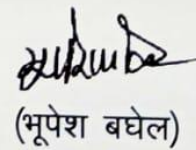 (भूपेश बघेल)